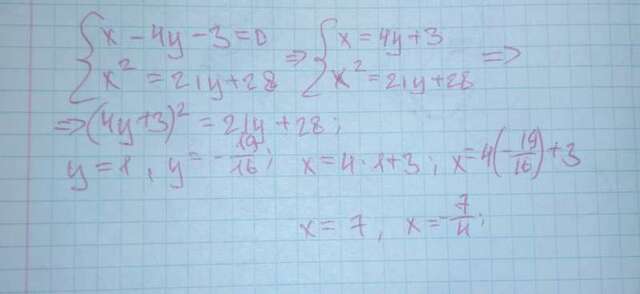 { x - 4y - 3 = 0 => { x = 4y + 3 =>
{ x² = 21y + 28 { x² = 21y + 28
=> (4y + 3)² = 21y + 28;
y = 1, y = -19/16; x = 4 · 1 + 3; x = 4(-19/16) + 3
x = 7, x = -7/4;